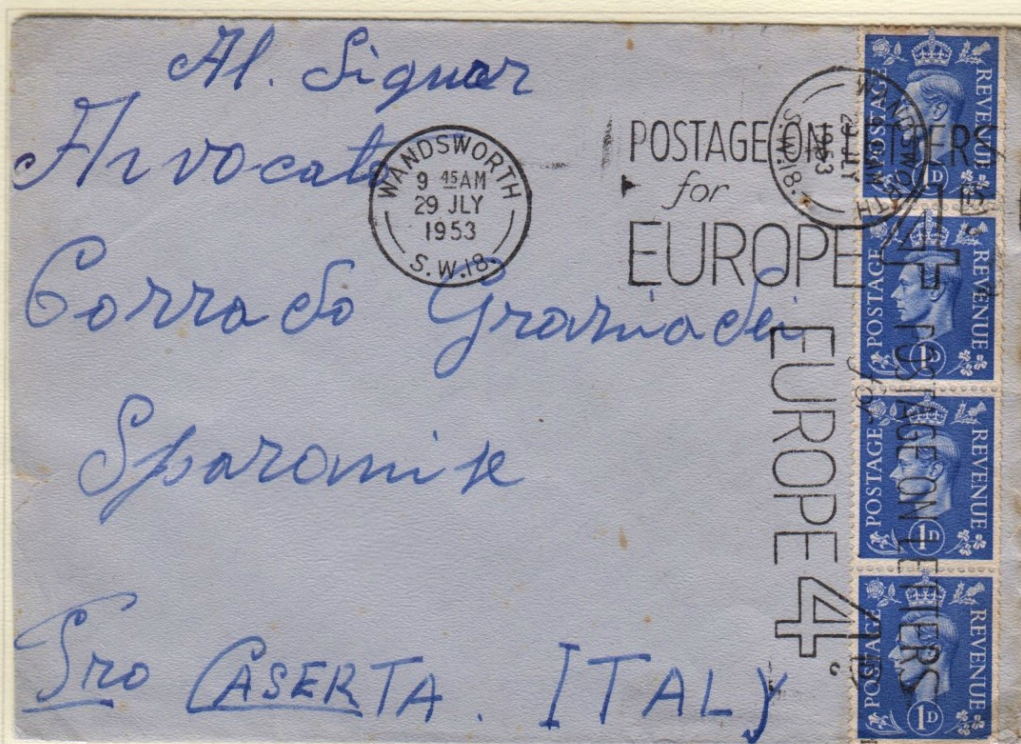 Al. Signor
Avvocato
Corrado
Sparanise
Pro CASERTA. ITALY
WANDSWORTH
9 45 AM
29 JLY
1953
S.W.18.
POSTAGE ON LETTERS
for
EUROPE 4D.
WANDSWORTH
29 JLY
1953
S.W.18.
POSTAGE ON LETTERS
for
EUROPE 4D.
POSTAGE REVENUE
1D
POSTAGE REVENUE
1D
POSTAGE REVENUE
1D
POSTAGE REVENUE
1D